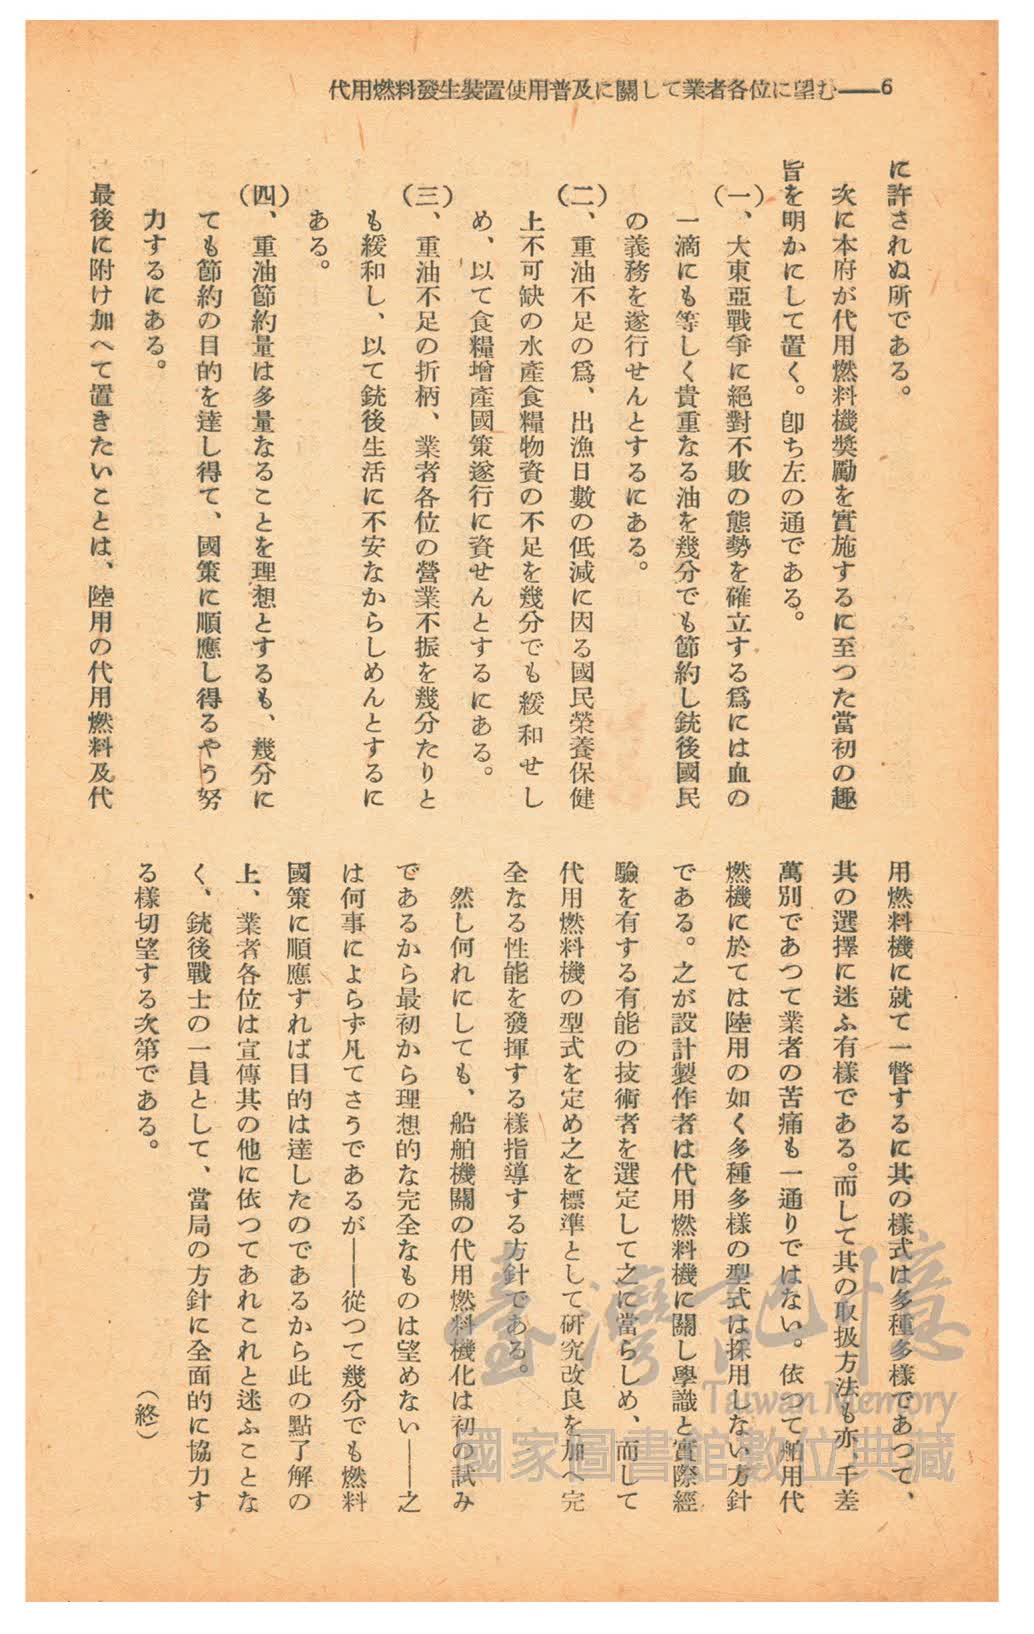 代用燃料發生裝置使用普及に關して業者各位に望む——6
に許されぬ所である。
次に本府が代用燃料機奬勵を實施するに至つた當初の趣
旨を明かにして置く。卽ち左の通である。
(一)、大東亞戰爭に絕對不敗の態勢を確立する爲には血の
一滴にも等しく貴重なる油を幾分でも節約し銃後國民
の義務を遂行せんとするにある。
(二)、重油不足の爲、出漁日數の低減に因る國民榮養保健
上不可缺の水產食糧物資の不足を幾分でも緩和せし
め、以て食糧增產國策遂行に資せんとするにある。
(三)、重油不足の折柄、業者各位の營業不振を幾分たりと
も緩和し、以て銃後生活に不安なからしめんとするに
ある。
(四)、重油節約量は多量なることを理想とするも、幾分に
ても節約の目的を達し得て、國策に順應し得るやう努
力するにある。
最後に附け加へて置きたいことは、陸用の代用燃料及代
用燃料機に就て一瞥するに其の樣式は多種多樣であつて、
其の選擇に迷ふ有樣である。而して其の取扱方法も亦、千差
萬別であつて業者の苦痛も一通りではない。依つて舶用代
燃機に於ては陸用の如く多種多樣の型式は採用しない方針
である。之が設計製作者は代用燃料機に關し學識と實際經
驗を有する有能の技術者を選定して之に當らしめ、而して
代用燃料機の型式を定め之を標準として研究改良を加へ完
全なる性能を發揮する樣指導する方針である。
然し何れにしても、船舶機關の代用燃料機化は初の試み
であるから最初から理想的な完全なものは望めない——之
は何事によらず凡てさうであるが——從つて幾分でも燃料
國策に順應すれば目的は達したのであるから此の點了解の
上、業者各位は宣傳其の他に依つてあれこれと迷ふことな
く、銃後戰士の一員として、當局の方針に全面的に協力す
る樣切望する次第である。
(終)
臺灣記憶
Taiwan Memory
國家圖書館數位典藏